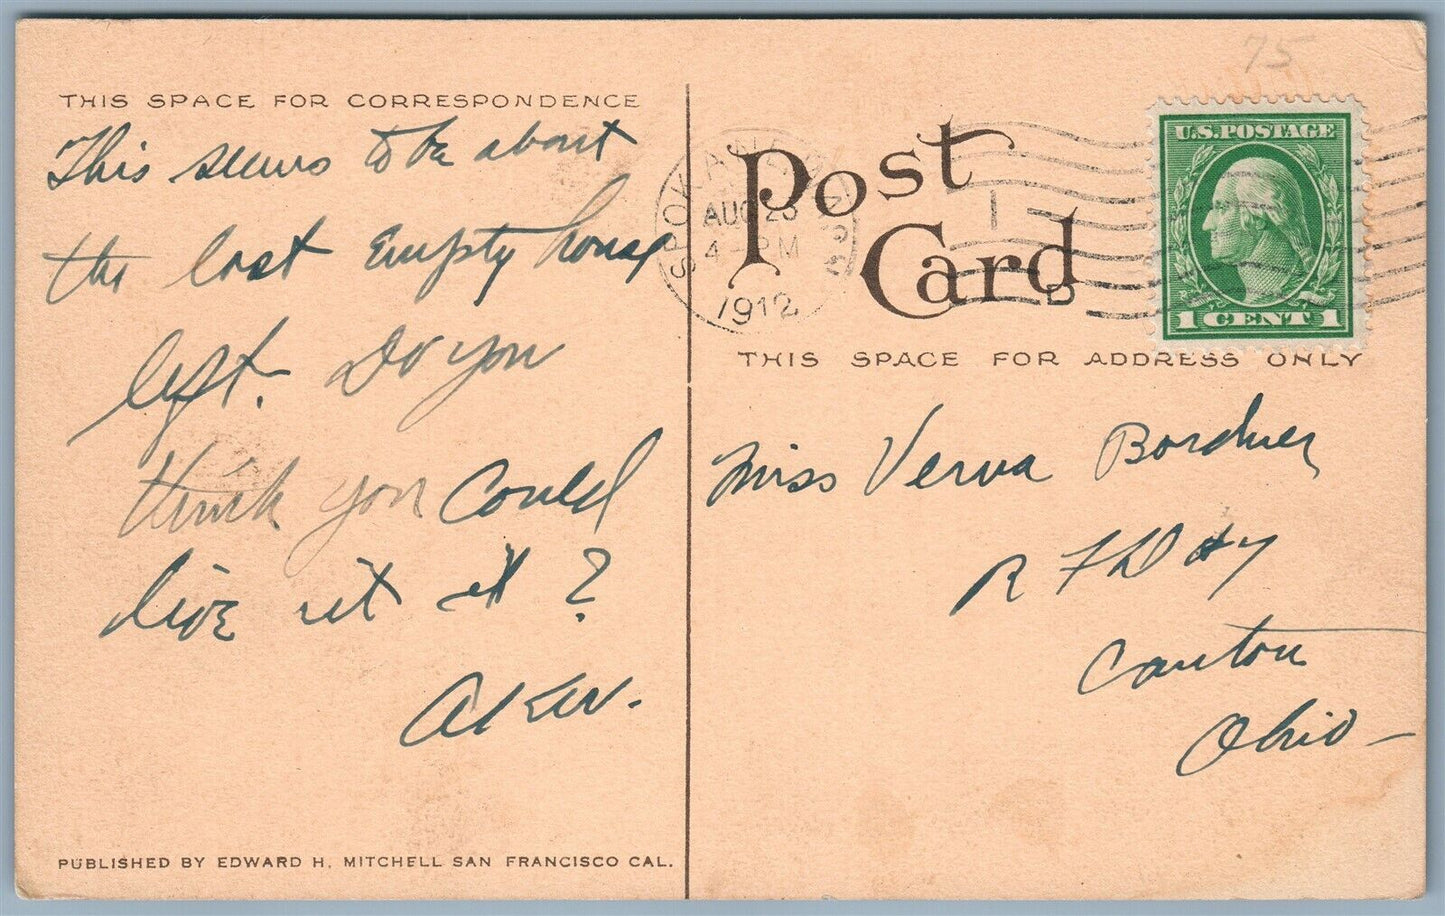 75
THIS SPACE FOR CORRESPONDENCE
This seems to be about
the last empty house
left. Do you
think you could
live it it?
Post
Card
SPOKANE
AUG 23
4 - PM
1912
U.S. POSTAGE
1 CENT 1
THIS SPACE FOR ADDRESS ONLY
Miss Verva Bordner
R F D #7
Canton
Ohio —
PUBLISHED BY EDWARD H. MITCHELL SAN FRANCISCO CAL.